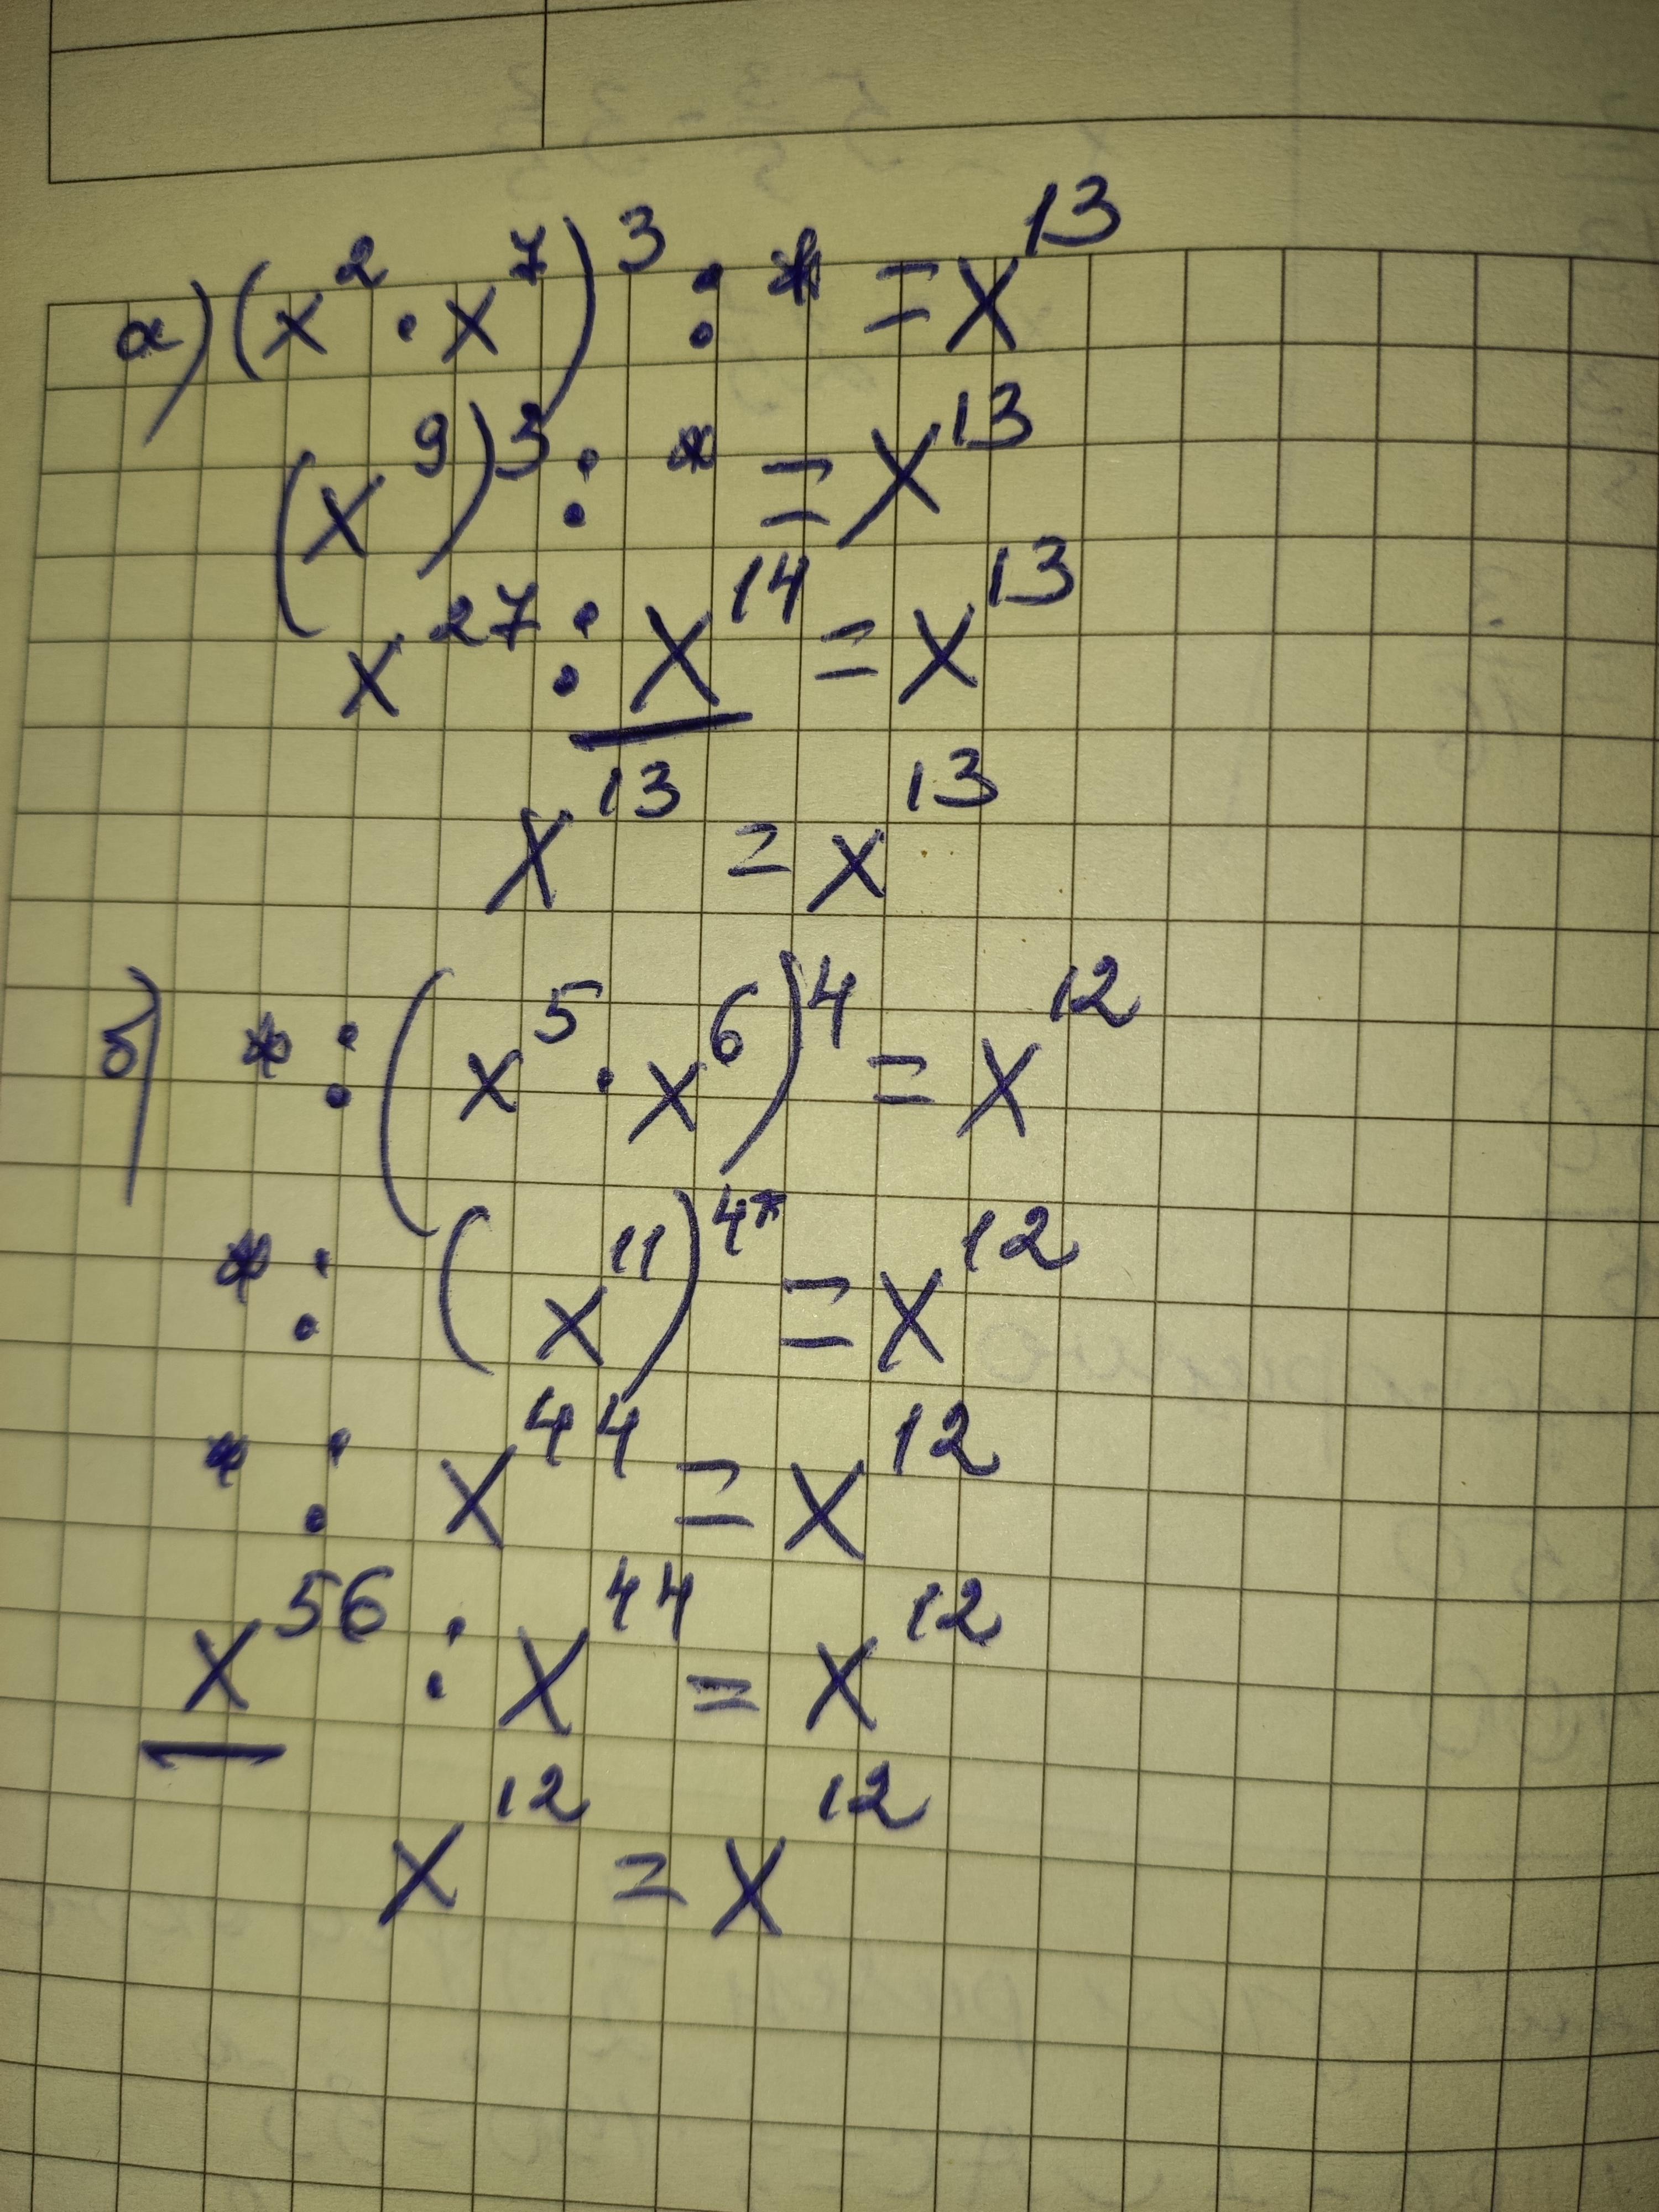 а) (x² · x⁷)³ : * = x¹³
(x⁹)³ : * = x¹³
x²⁷ : x¹⁴ = x¹³
x¹³ = x¹³
б) * : (x⁵ · x⁶)⁴ = x¹²
* : (x¹¹)⁴* = x¹²
* : x⁴⁴ = x¹²
x⁵⁶ : x⁴⁴ = x¹²
x¹² = x¹²